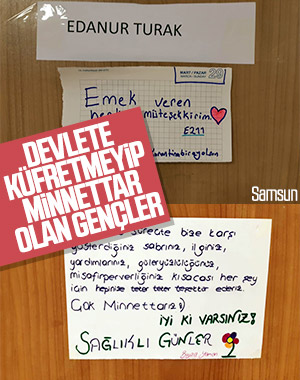 EDANUR TURAK
MART / PAZAR
29
Emek veren
müteşekkirim
E211
DEVLETE
KÜFRETMEYİP
MİNNETTAR
OLAN GENÇLER
Samsun
süreçte bize karşı
gösterdiğiniz sabrınız, ilginiz,
yardımlarınız, güleryüzlülüğünüz,
misafirperverliğiniz kısacası her şey
için hepinize teker teker teşekkür ederiz.
Çok Minnettarız :)
İYİ Kİ VARSINIZ!
SAĞLIKLI GÜNLER